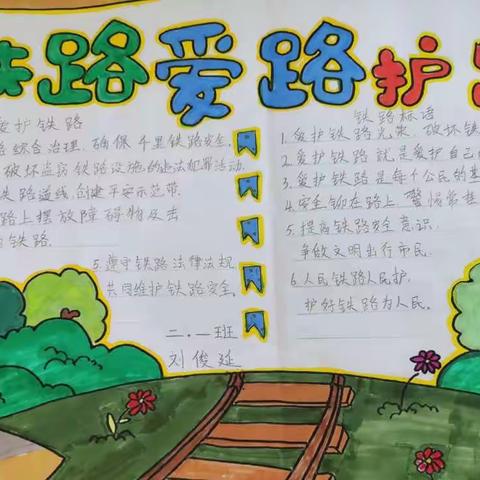 铁路爱路护
爱护铁路
综合治理,确保千里铁路安全。
破坏盗窃铁路设施的违法犯罪活动。
铁路道线,创建平安示范带。
路上摆放障碍物及击
铁路.
5.遵守铁路法律法规,
共同维护铁路安全。
二.一班
刘俊延
铁路标语
1.爱护铁路光荣,破坏铁
2.爱护铁路就是爱护自己
3.爱护铁路是每个公民的
4.安全铆在路上,警惕常挂
5.提高铁路安全意识,
争做文明出行市民.
6.人民铁路人民护,
护好铁路为人民。